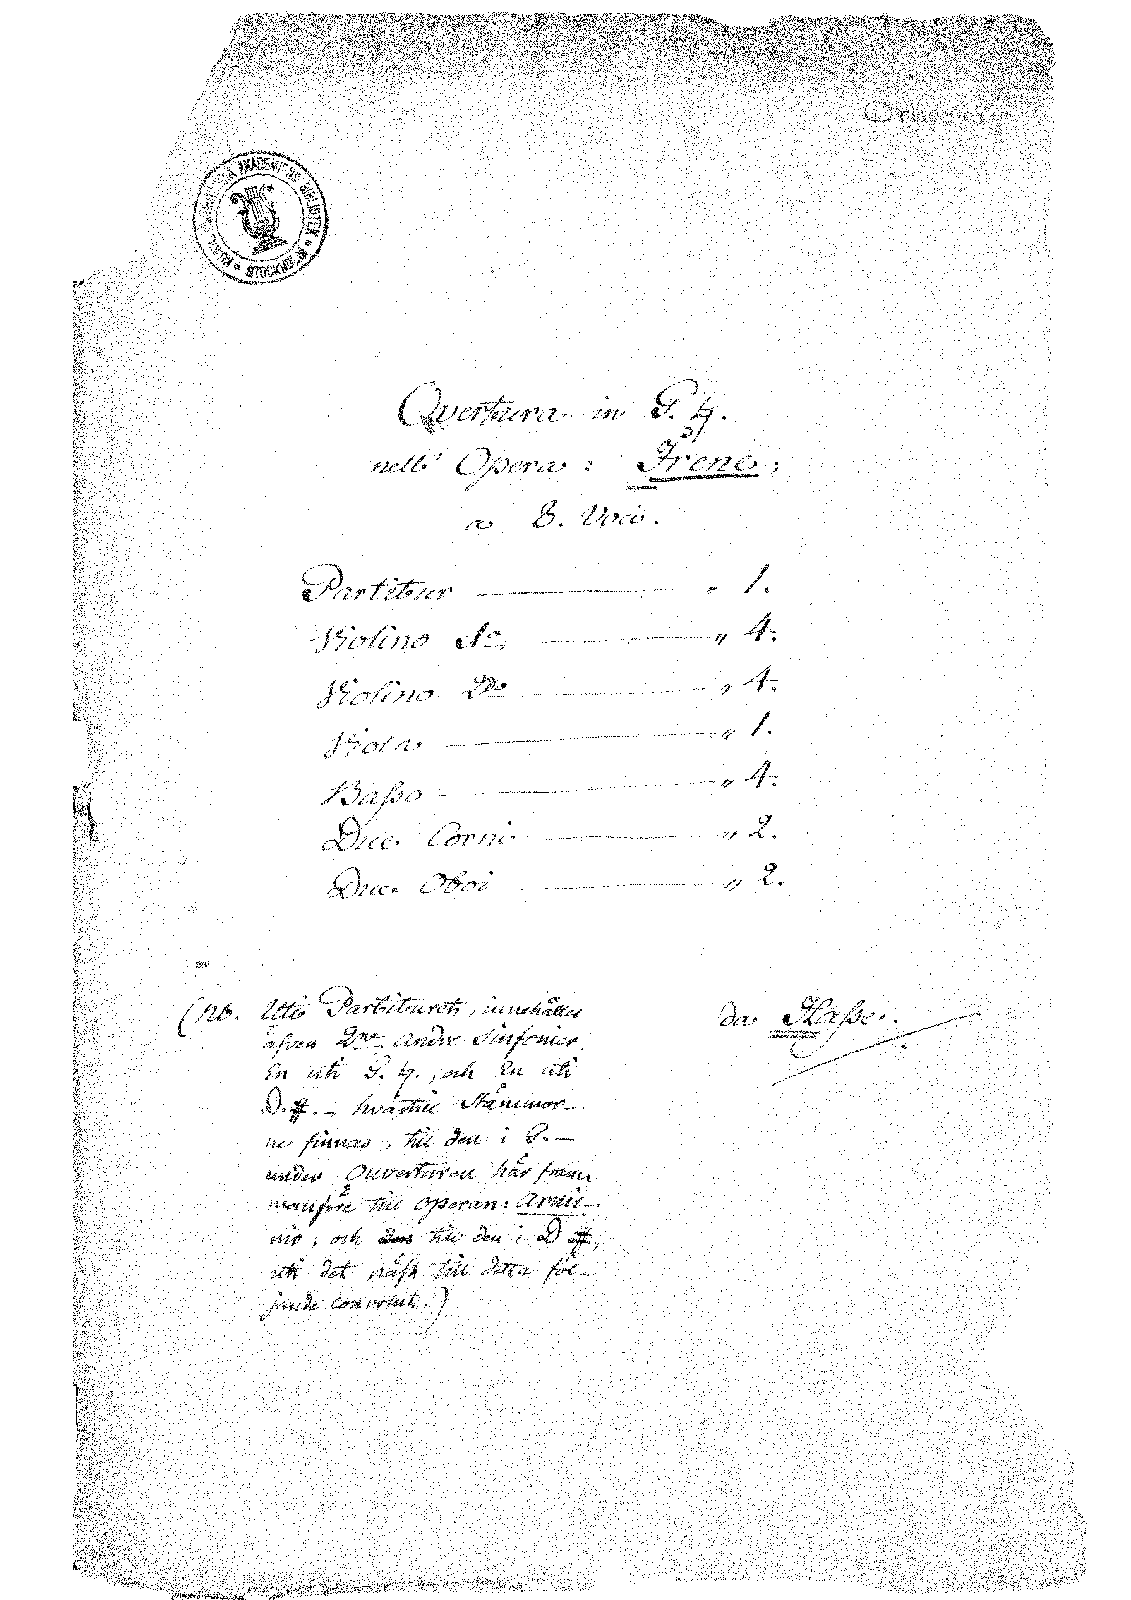 KUNGL. MUSIKALISKA AKADEMIENS BIBLIOTEK * STOCKHOLM *
Ouvertura in G. ♮.
nell' Opera: Irene,
a 8. Voci.
Partitur — " 1.
Violino 1o, — " 4.
Violino 2do — " 4.
Viola — " 1.
Baſso — " 4.
Due Corni — " 2.
Due Oboi — " 2.
(NB. Uti Partituret, innehålles
äfven 2ne andre Sinfonier.
En uti G. ♮., och En uti
D. #. — hvartill Stämmor-
ne finnas, till den i G. —
under Ouverturen här fram
manföre till operan: Armi-
nio, och till den i D #,
uti det näst till detta föl-
jande convolut.)
da Haſse.